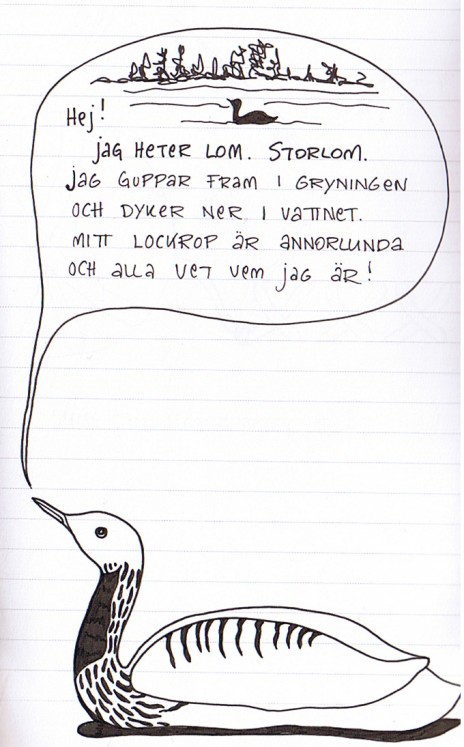 Hej!
jag HETER LOM. STORLOM.
jag GUPPAR FRAM I GRYNINGEN
OCH DYKER NER I VATTNET.
MITT LOCKROP ÄR ANNORLUNDA
OCH ALLA VET VEM jag ÄR!